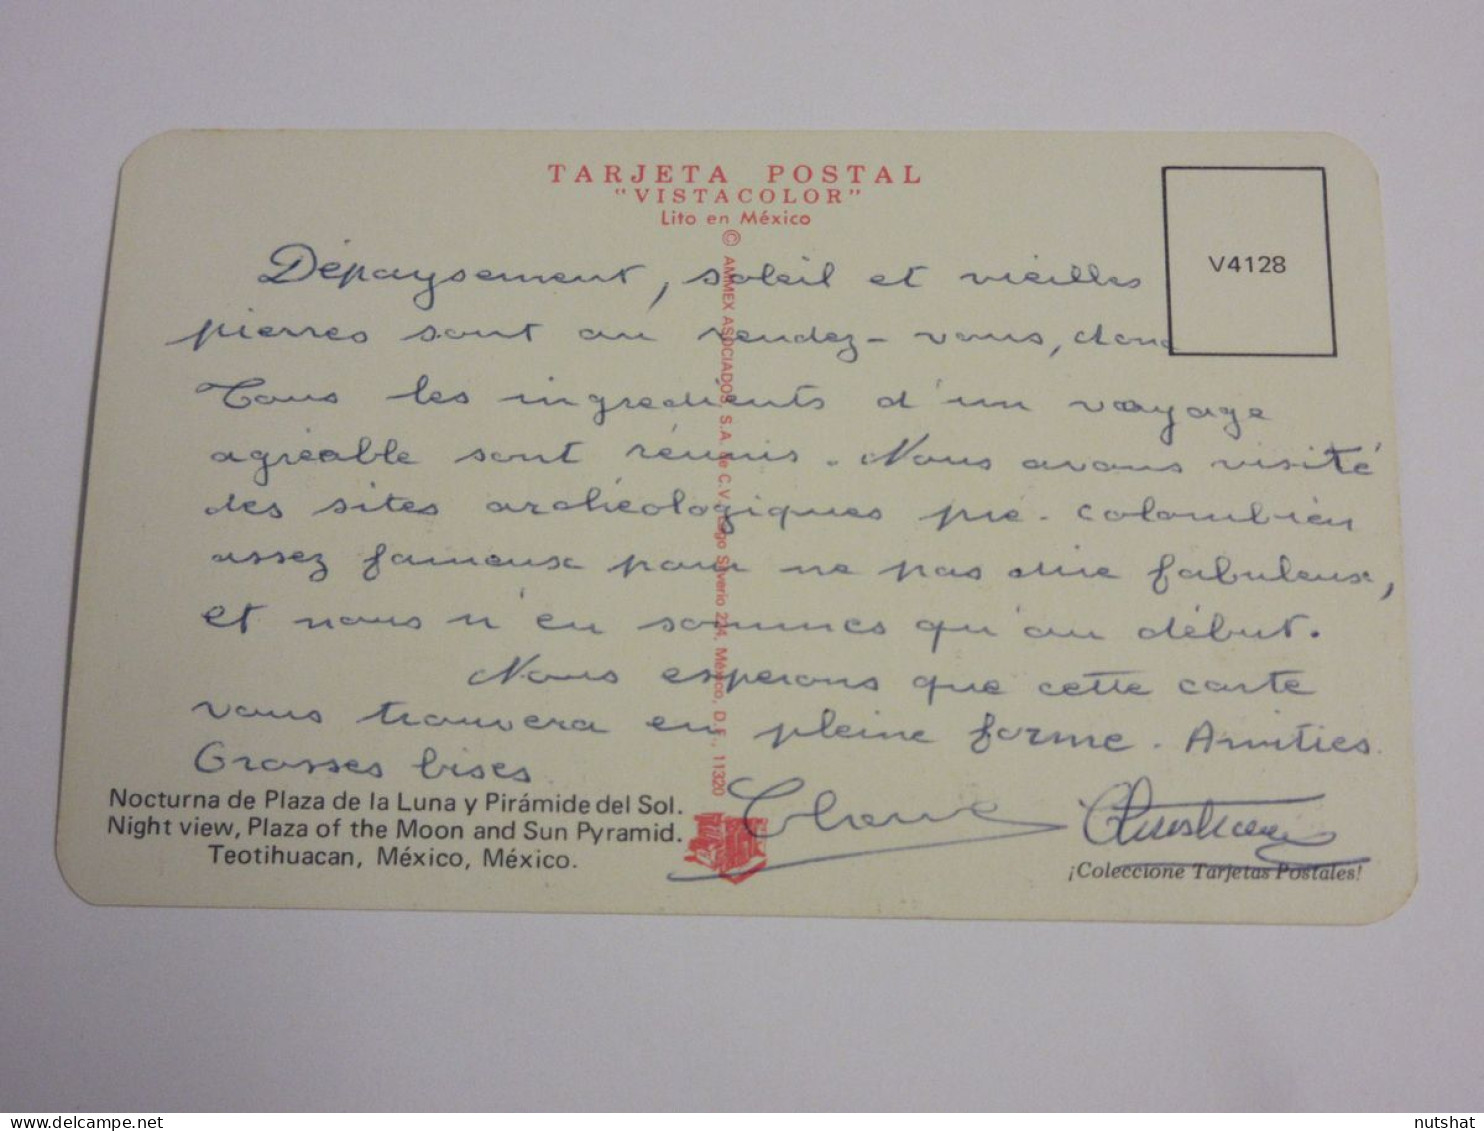 TARJETA POSTAL
"VISTACOLOR"
Lito en México
V4128
© AMMEX ASOCIADOS, S.A. de C.V. Lago Silverio 224, México, D.F., 11320
Dépaysement, soleil et vieilles
pierres sont au rendez-vous, donc
Tous les ingredients d'un voyage
agréable sont réunis. Nous avons visité
des sites archéologiques pré-colombien
assez fameux pour ne pas dire fabuleux,
et nous n'en sommes qu'au début.
Nous esperons que cette carte
vous trouvera en pleine forme. Amitiés.
Grosses bises
Nocturna de Plaza de la Luna y Pirámide del Sol.
Night view, Plaza of the Moon and Sun Pyramid.
Teotihuacan, México, México.
¡Coleccione Tarjetas Postales!
delcampe.net
nutshat